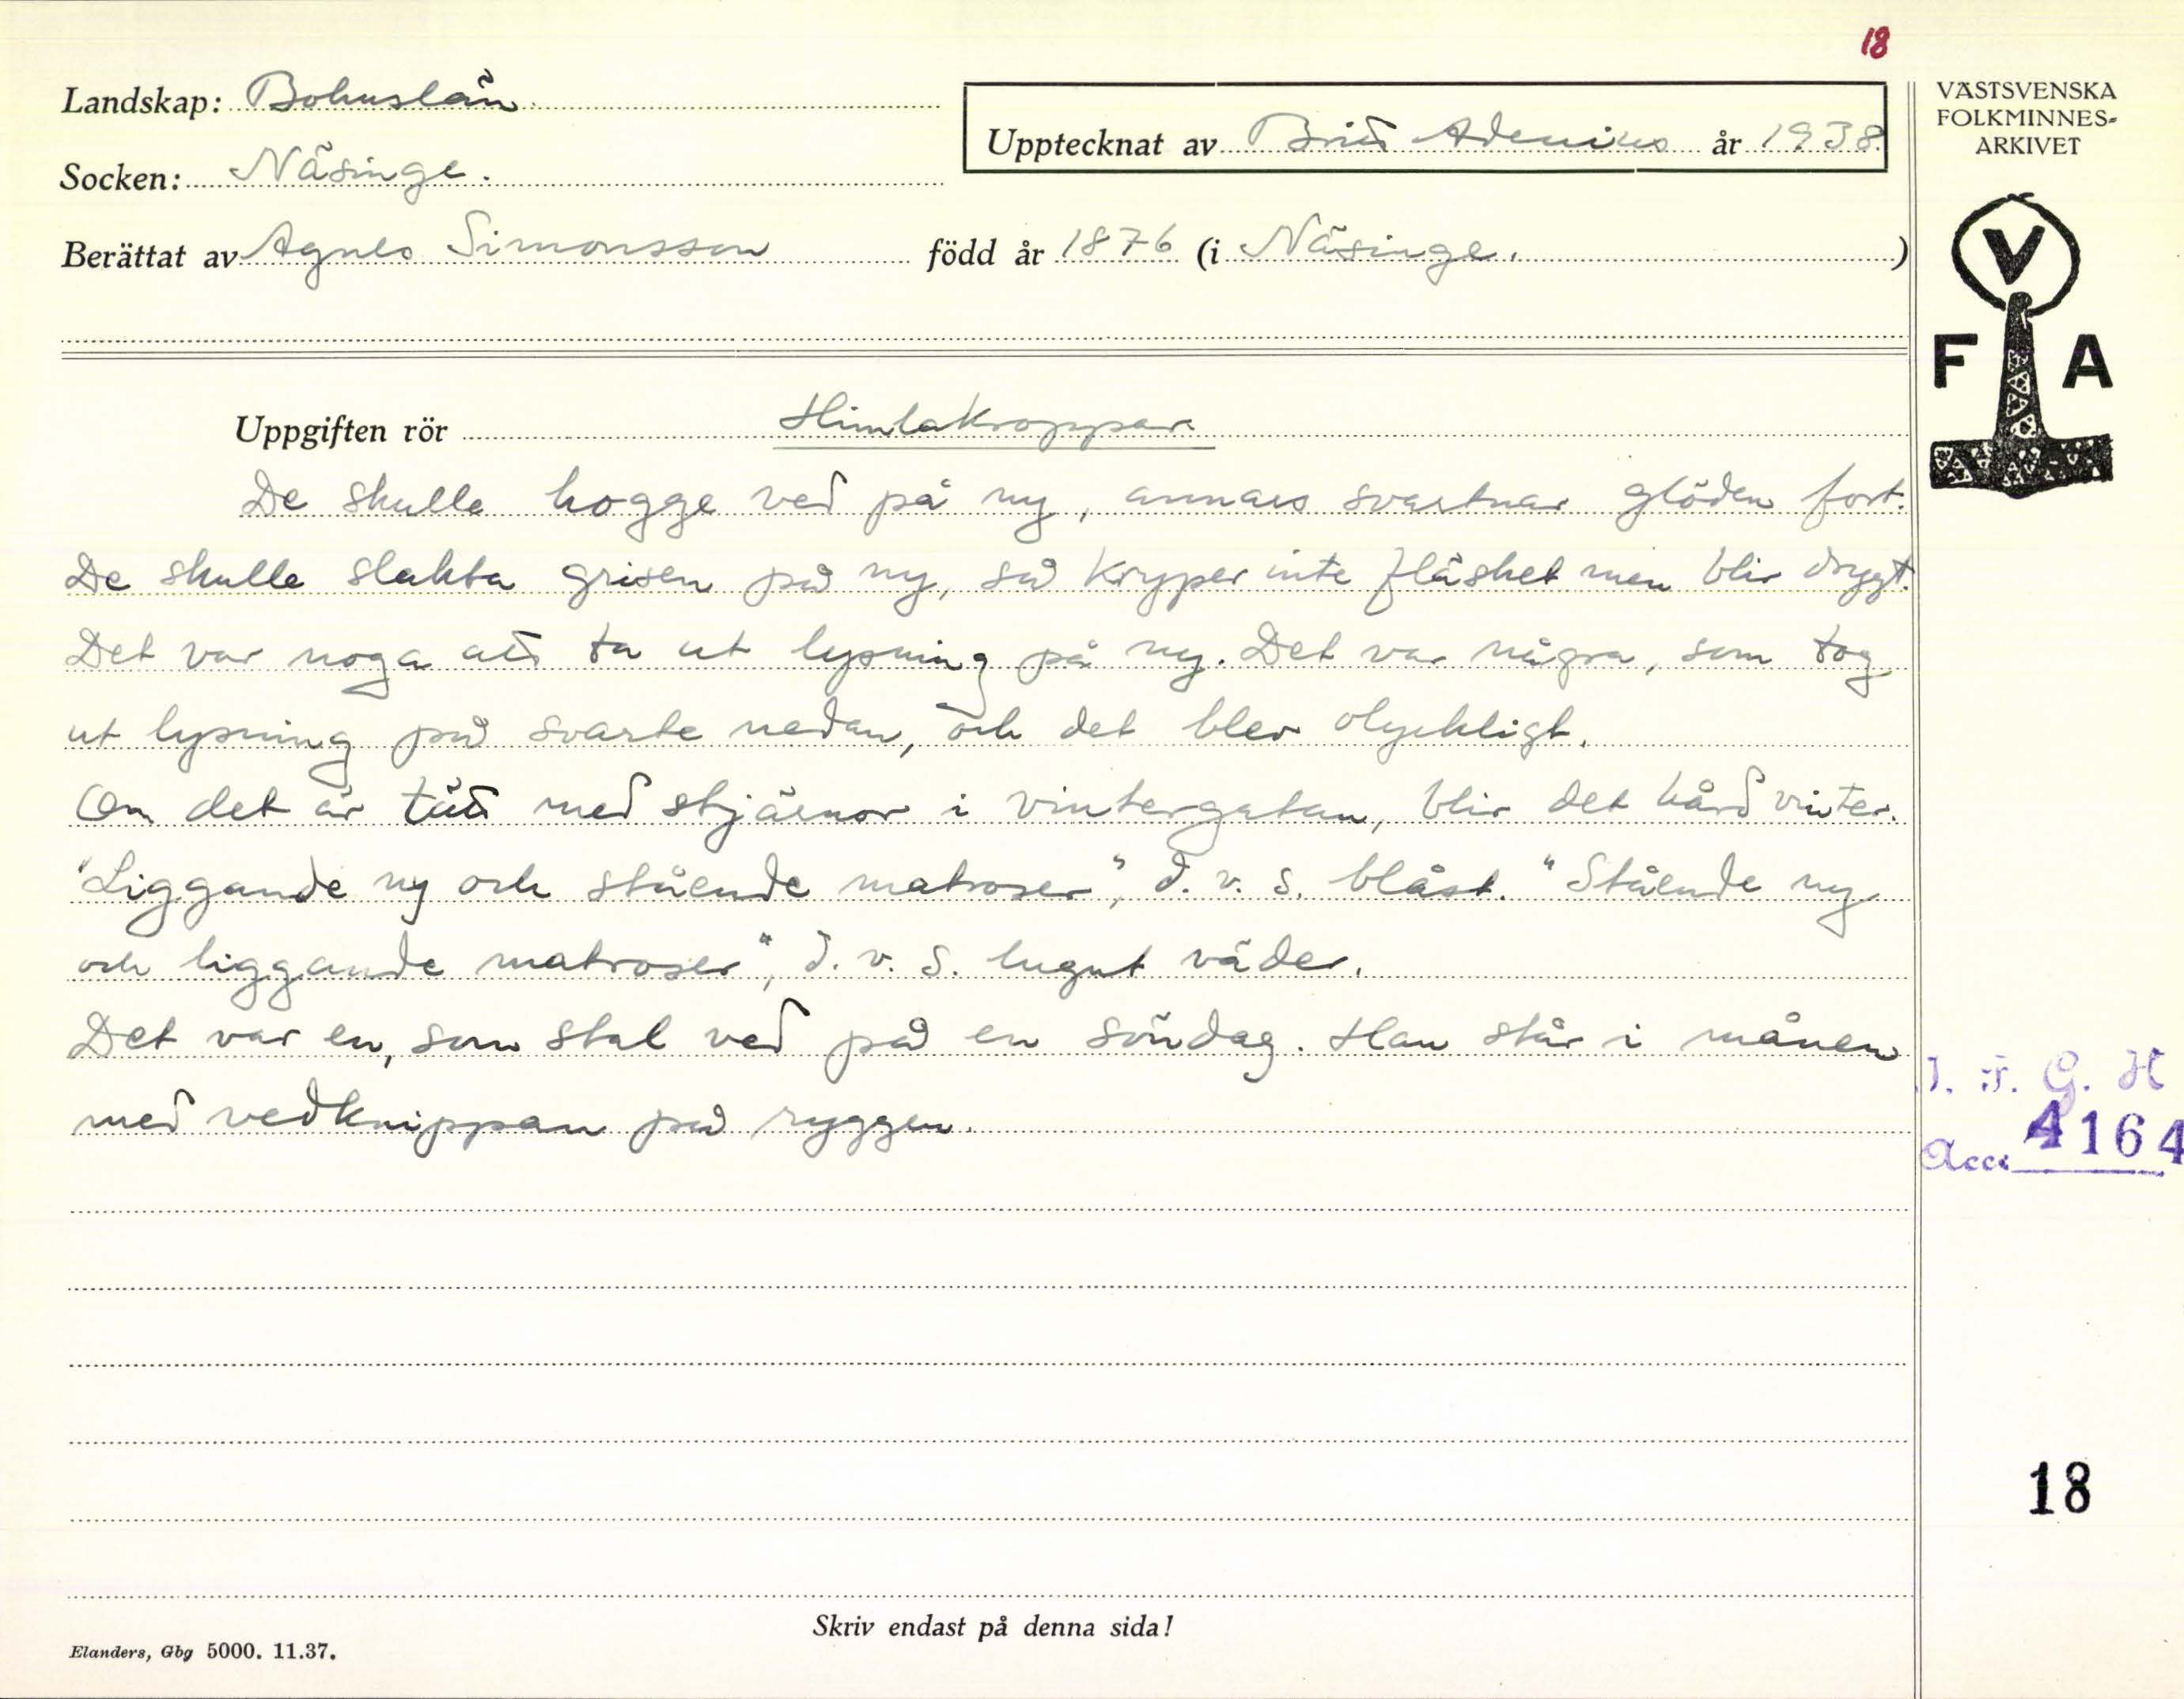 18
Landskap: Bohuslän.
Upptecknat av Britt Adenius år 1938.
Socken: Näsinge.
Berättat av Agnes Simonsson född år 1876 (i Näsinge.)
VÄSTSVENSKA
FOLKMINNES-
ARKIVET
V
F A
Uppgiften rör Himlakroppar.
De skulle hogge ved på ny, annars svartnar glöden fort.
De skulle slakta grisen på ny, så kryper inte fläsket men blir drygt.
Det var noga att ta ut lysning på ny. Det var några, som tog
ut lysning på svarte nedan, och det blev olyckligt.
Om det är tätt med stjärnor i vintergatan, blir det hård vinter.
"Liggande ny och stående matroser", d.v.s. blåst. "Stående ny
och liggande matroser", d.v.s. lugnt väder.
Det var en, som stal ved på en söndag. Han står i månen
med vedknippan på ryggen.
I. F. G. H
Acc. 4164
18
Skriv endast på denna sida!
Elanders, Gbg 5000. 11.37.